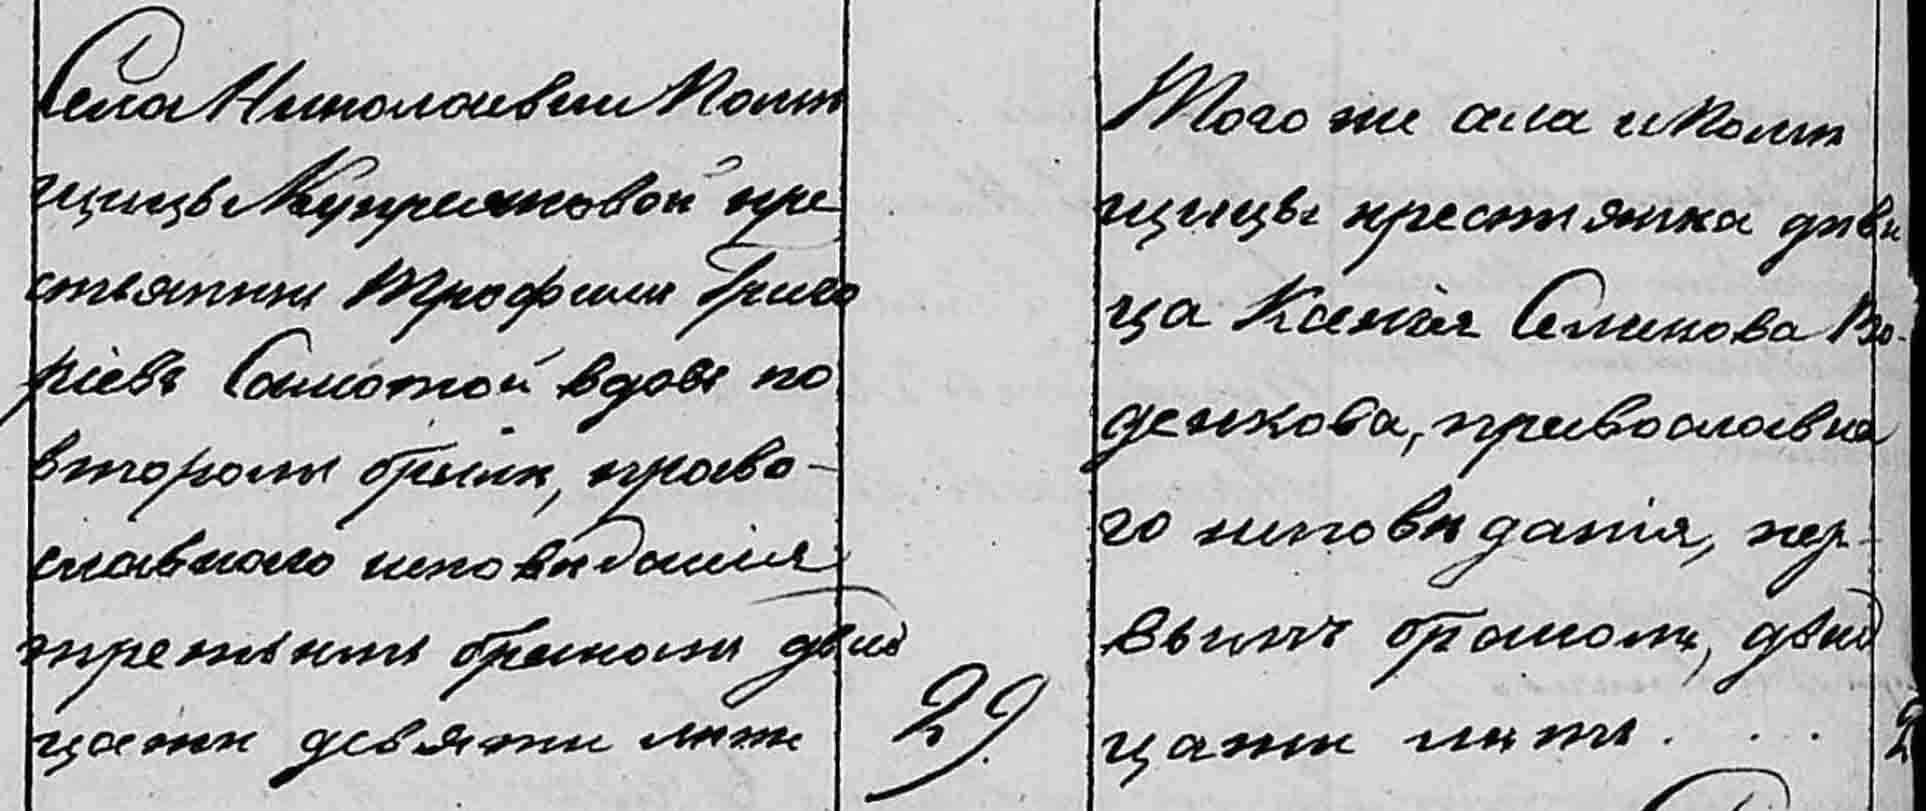 Села Николаевки Помѣ
щицы Куприяновой кре
стьянинъ Трофимъ Григо
ріевъ Самотой вдовъ по
второмъ бракѣ, право-
славнаго исповѣданія
третьимъ бракомъ двад
цати девяти лѣтъ
29.
Того же села и Помѣ
щицы крестьянка дѣви
ца Ксенія Семенова
денкова, православна
го исповѣданія, пер-
вымъ бракомъ, двад
цати лѣтъ . . .